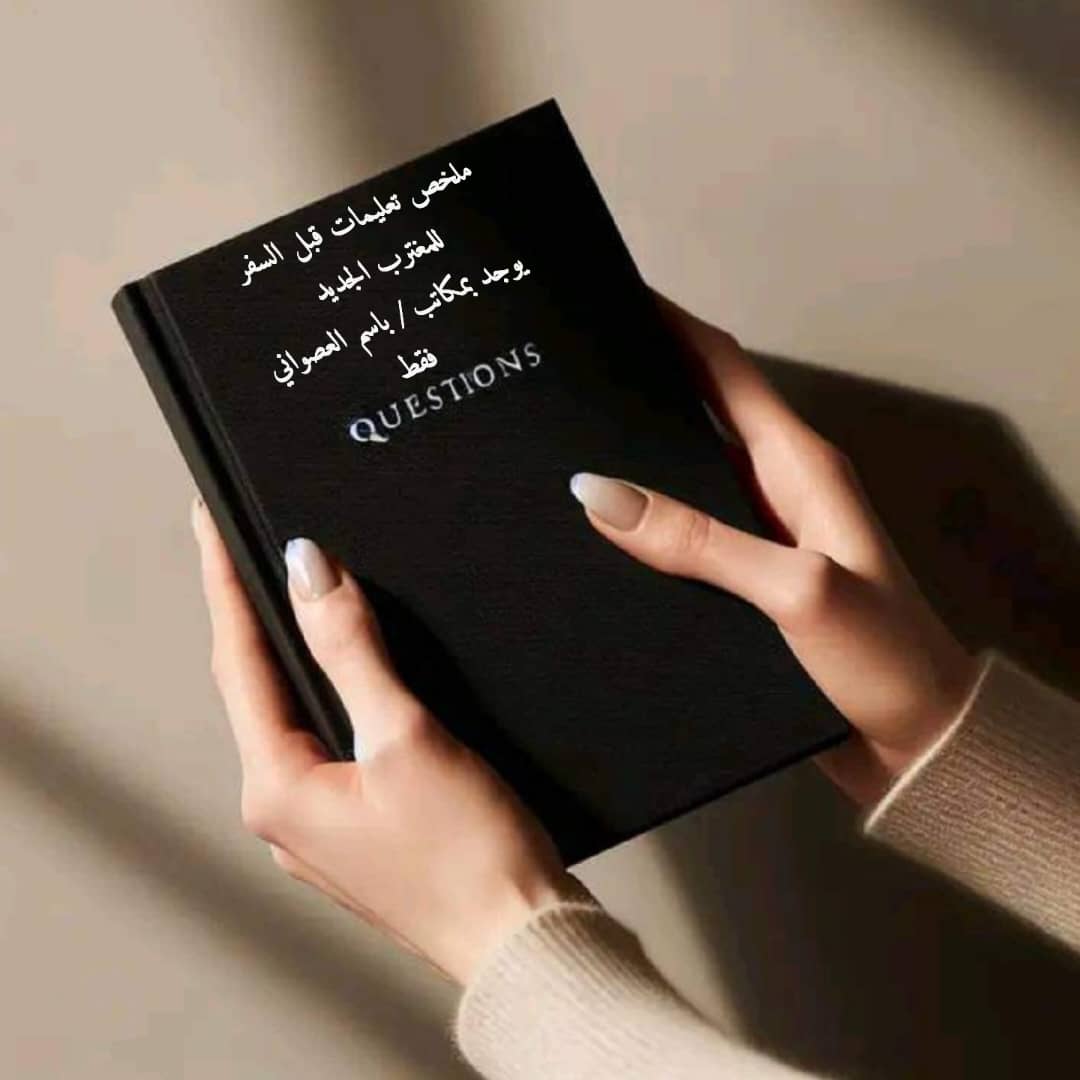 ملخص تعليمات قبل السفر
للمغترب الجديد
يوجد بمكاتب / باسم العصواني
فقط
QUESTIONS